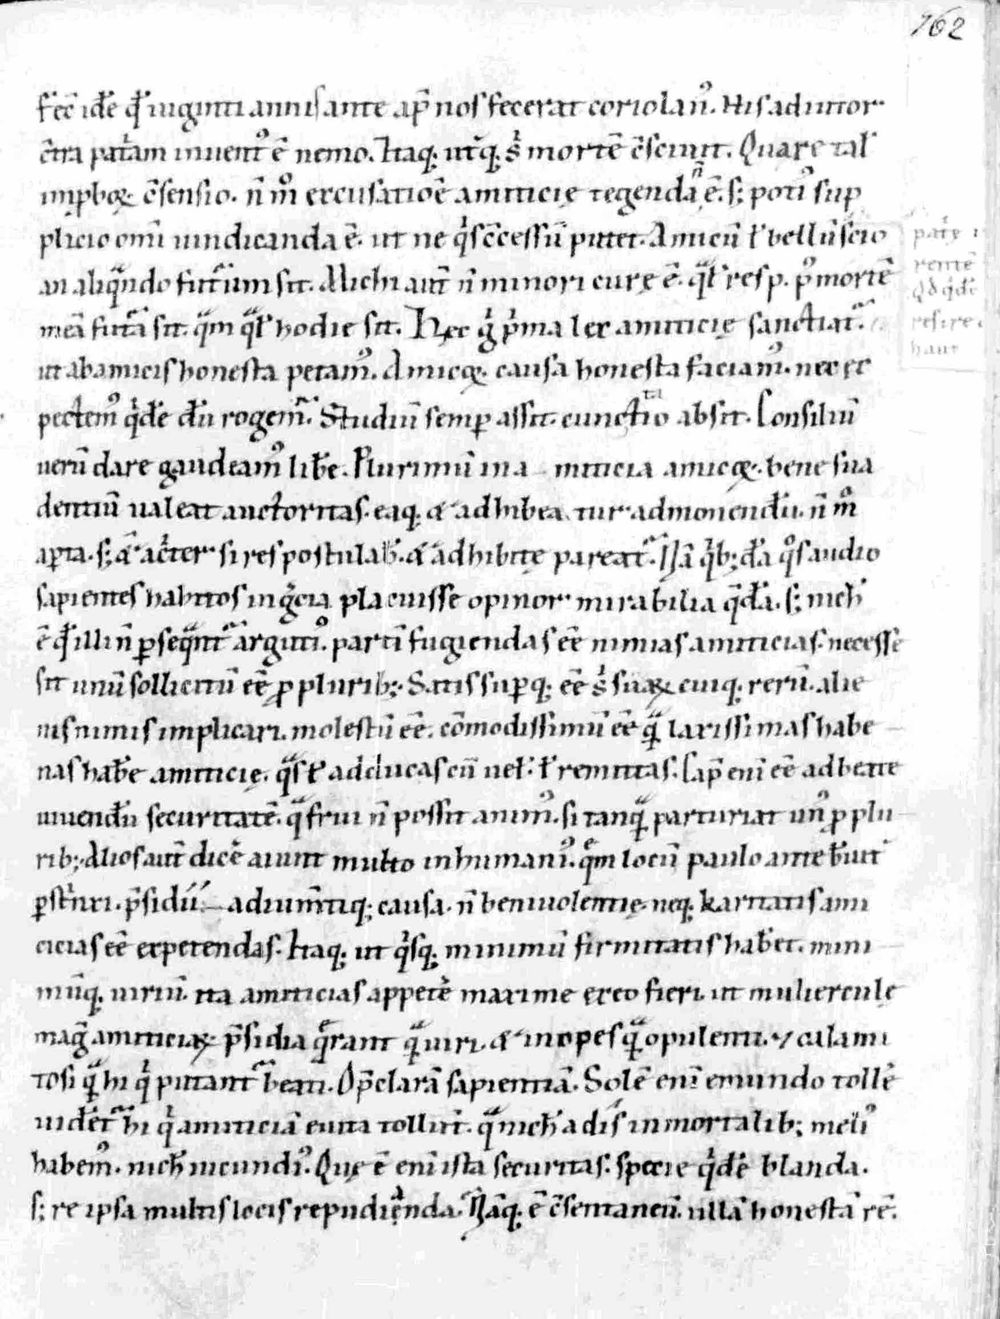 162
fec̄ idē qđ uiginti annis ante ap̄ nos fecerat coriolan᾿. His adiutor
c̄tra pat̄am inuent᾿ ē nemo. Itaq; ut̄q; s̄ morte c̄sciuit. Quare tal᾿
improboꝝ c̄sensio. n̄ m̊ excusatiōe amiticię tegenda n̄ ē. s; poti᾿ sup
plicio om̄i uindicanda ē. ut ne q̊s c̄cessū putet. Amicū ł bellū
an aliqͣndo futurum sit. Michi aut̄ n̄ minori curę ē. qͣł res p. p᾿ mortē
meā futᷓa sit. qͣm qͣł hodie sit. Hec g̊ p̊ma lex amiticię sanctiat᷑.
ut ab amicis honesta petam᾿. Amicoꝝ causa honesta faciam᾿. nec ex
pectem᾿ q̊dē dū rogem᷑. Studiū semꝑ assit. cunctatio absit. Consiliū
uerū dare gaudeam᾿ libē. Plurimū in a miticia amicoꝝ bene sua
dentiū ualeat auctoritas. eaq; & adhibea tur admonendū. n̄ m̊
aꝑta. s; & ac̊ter si res postulab̄. & adhibite pareat᷑. Nā q̊b; dā q̊s audio
sapientes habitos in g̊cia placuisse opinor mirabilia q̄dā. s; nich̄
ē qđ illi n̄ ꝑseqͣnt᷑ arguti᾿. partī fugiendas eē nimias amiticias. necesse
sit unū sollicitū eē ꝓ plurib;. Satis suꝑq; eē s̊ suaꝝ cuiq; rerū. alie
nis nimis implicari. molestū eē. cōmodissimū eē qͣ̄ laxissimas habe
nas habē amiticię. qͣs ł adducas cū uel᾿. ł remittas. Cap̄ enī eē ad beate
uiuendū securitatē. qͣ frui n̄ possit anim᾿. si tanqͣ̄ parturiat un᾿ ꝓ plu
rib;. Alios aut̄ dicē aiunt multo inhumani᾿. qᷓm locū paulo ante b̄uit᷑
ꝑst̊nxi. p̄sidii adium̄tiq; causa. n̄ beniuolentię neq; karitatis ami
cicias eē expetendas. Itaq; ut q̊sq; minimū firmitatis habet. mini
mūq; uiriū. ita amiticias appetē maxime ex eo fieri ut mulierculę
mag̊ amiticiaꝝ p̄sidia qᷓrant qͣ̄ uiri. & inopes qͣ̄ opulenti. ⁊ calami
tosi qͣ̄ hi q̊ putant᷑ beati. O p̄clarā sapientiā. Solē enī e mundo tollē
uidet᷑ hi q̊ amiticiā e uita tollūt. qͣ nich̄ a dis inmortalib; meli᾿
habem᾿. nich̄ iucundi᾿. Quę ē enī ista securitas. specie q̊dē blanda.
s; re ipsa multis locis repudiēnda. Nāq; ē c̄sentaneū. ullā honestā rē.